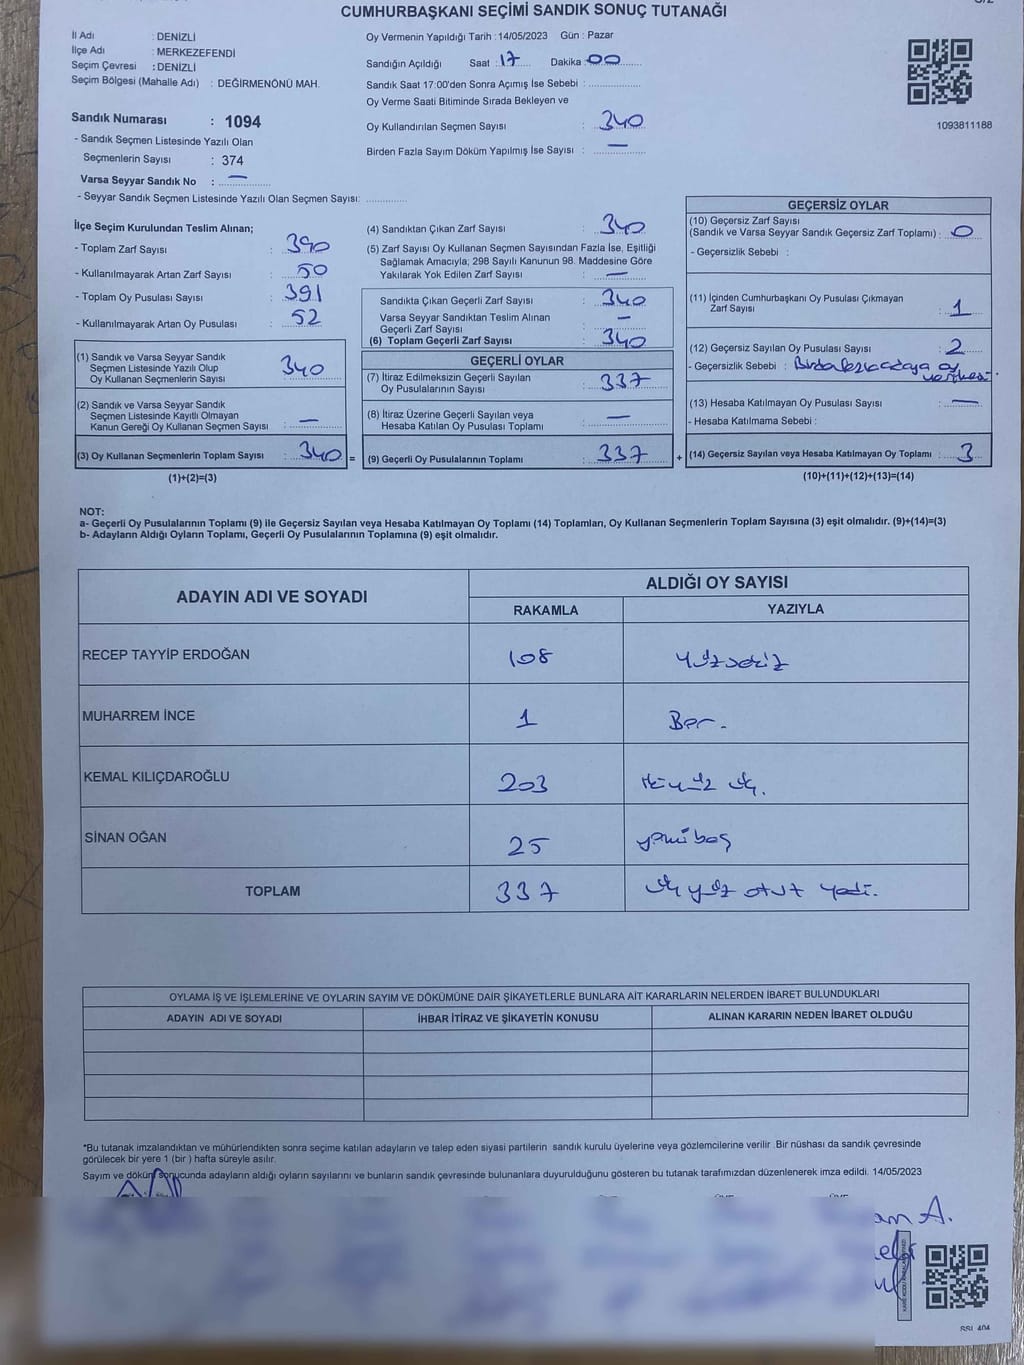 CUMHURBAŞKANI SEÇİMİ SANDIK SONUÇ TUTANAĞI
İl Adı : DENİZLİ
İlçe Adı : MERKEZEFENDİ
Seçim Çevresi : DENİZLİ
Seçim Bölgesi (Mahalle Adı) : DEĞİRMENÖNÜ MAH.
Sandık Numarası : 1094
- Sandık Seçmen Listesinde Yazılı Olan
Seçmenlerin Sayısı : 374
Varsa Seyyar Sandık No : —
- Seyyar Sandık Seçmen Listesinde Yazılı Olan Seçmen Sayısı: ............
Oy Vermenin Yapıldığı Tarih : 14/05/2023 Gün : Pazar
Sandığın Açıldığı Saat : 17 Dakika : 00
Sandık Saat 17:00'den Sonra Açımış İse Sebebi : ................
Oy Verme Saati Bitiminde Sırada Bekleyen ve
Oy Kullandırılan Seçmen Sayısı : 340
Birden Fazla Sayım Döküm Yapılmış İse Sayısı : —
1093811188
İlçe Seçim Kurulundan Teslim Alınan;
- Toplam Zarf Sayısı : 390
- Kullanılmayarak Artan Zarf Sayısı : 50
- Toplam Oy Pusulası Sayısı : 391
- Kullanılmayarak Artan Oy Pusulası : 52
(1) Sandık ve Varsa Seyyar Sandık
Seçmen Listesinde Yazılı Olup
Oy Kullanan Seçmenlerin Sayısı : 340
(2) Sandık ve Varsa Seyyar Sandık
Seçmen Listesinde Kayıtlı Olmayan
Kanun Gereği Oy Kullanan Seçmen Sayısı : —
(3) Oy Kullanan Seçmenlerin Toplam Sayısı : 340 =
(1)+(2)=(3)
(4) Sandıktan Çıkan Zarf Sayısı : 340
(5) Zarf Sayısı Oy Kullanan Seçmen Sayısından Fazla İse, Eşitliği
Sağlamak Amacıyla; 298 Sayılı Kanunun 98. Maddesine Göre
Yakılarak Yok Edilen Zarf Sayısı : —
Sandıkta Çıkan Geçerli Zarf Sayısı : 340
Varsa Seyyar Sandıktan Teslim Alınan
Geçerli Zarf Sayısı : —
(6) Toplam Geçerli Zarf Sayısı : 340
GEÇERLİ OYLAR
(7) İtiraz Edilmeksizin Geçerli Sayılan
Oy Pusulalarının Sayısı : 337
(8) İtiraz Üzerine Geçerli Sayılan veya
Hesaba Katılan Oy Pusulası Toplamı : —
(9) Geçerli Oy Pusulalarının Toplamı : 337 +
GEÇERSİZ OYLAR
(10) Geçersiz Zarf Sayısı
(Sandık ve Varsa Seyyar Sandık Geçersiz Zarf Toplamı) : 0
- Geçersizlik Sebebi :
(11) İçinden Cumhurbaşkanı Oy Pusulası Çıkmayan
Zarf Sayısı : 1
(12) Geçersiz Sayılan Oy Pusulası Sayısı : 2
- Geçersizlik Sebebi : Birden fazla adaya oy
verilmesi.
(13) Hesaba Katılmayan Oy Pusulası Sayısı : —
- Hesaba Katılmama Sebebi :
(14) Geçersiz Sayılan veya Hesaba Katılmayan Oy Toplamı : 3
(10)+(11)+(12)+(13)=(14)
NOT:
a- Geçerli Oy Pusulalarının Toplamı (9) ile Geçersiz Sayılan veya Hesaba Katılmayan Oy Toplamı (14) Toplamları, Oy Kullanan Seçmenlerin Toplam Sayısına (3) eşit olmalıdır. (9)+(14)=(3)
b- Adayların Aldığı Oyların Toplamı, Geçerli Oy Pusulalarının Toplamına (9) eşit olmalıdır.
ADAYIN ADI VE SOYADI ALDIĞI OY SAYISI
RAKAMLA YAZIYLA
RECEP TAYYİP ERDOĞAN 108 Yüzsekiz
MUHARREM İNCE 1 Bir.
KEMAL KILIÇDAROĞLU 203 İkiyüz üç.
SİNAN OĞAN 25 yirmibeş
TOPLAM 337 Üç yüz otuz yedi.
OYLAMA İŞ VE İŞLEMLERİNE VE OYLARIN SAYIM VE DÖKÜMÜNE DAİR ŞİKAYETLERLE BUNLARA AİT KARARLARIN NELERDEN İBARET BULUNDUKLARI
ADAYIN ADI VE SOYADI İHBAR İTİRAZ VE ŞİKAYETİN KONUSU ALINAN KARARIN NEDEN İBARET OLDUĞU
*Bu tutanak imzalandıktan ve mühürlendikten sonra seçime katılan adayların ve talep eden siyasi partilerin sandık kurulu üyelerine veya gözlemcilerine verilir. Bir nüshası da sandık çevresinde
görülecek bir yere 1 (bir ) hafta süreyle asılır.
Sayım ve döküm sonucunda adayların aldığı oyların sayılarını ve bunların sandık çevresinde bulunanlara duyurulduğunu gösteren bu tutanak tarafımızdan düzenlenerek imza edildi. 14/05/2023
an A.